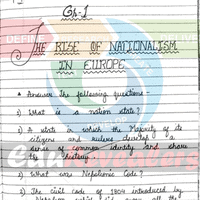 Ch-1
THE RISE OF NATIONALISM
IN EUROPE
* Answer the following questions -
1) What is a nation state?
A state in which the Majority of its
citizens and rulers develop a
sense of common identity and share
history.
2) What was Napoleonic Code?
The Civil Code of 1804 introduced by
Napoleon all the